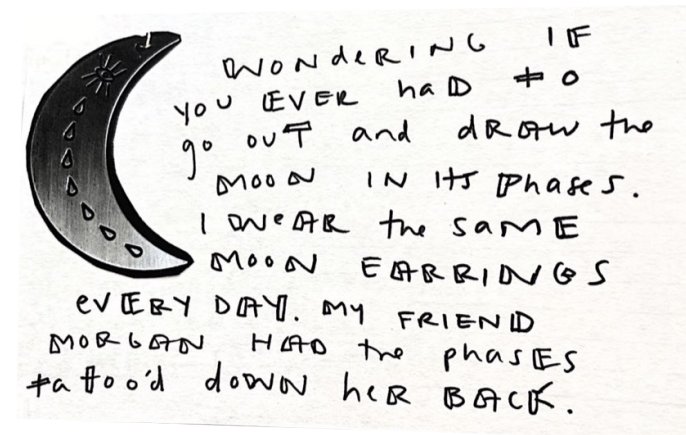 WONDERING IF
YOU EVER haD to
go OUT and dRAW the
MOON IN ITS Phases.
I WEAR the SAME
MOON EARRINGS
eVERY DAY. MY FRIEND
MORGAN HAD the phASES
tattoo'd dOWN heR BACK.